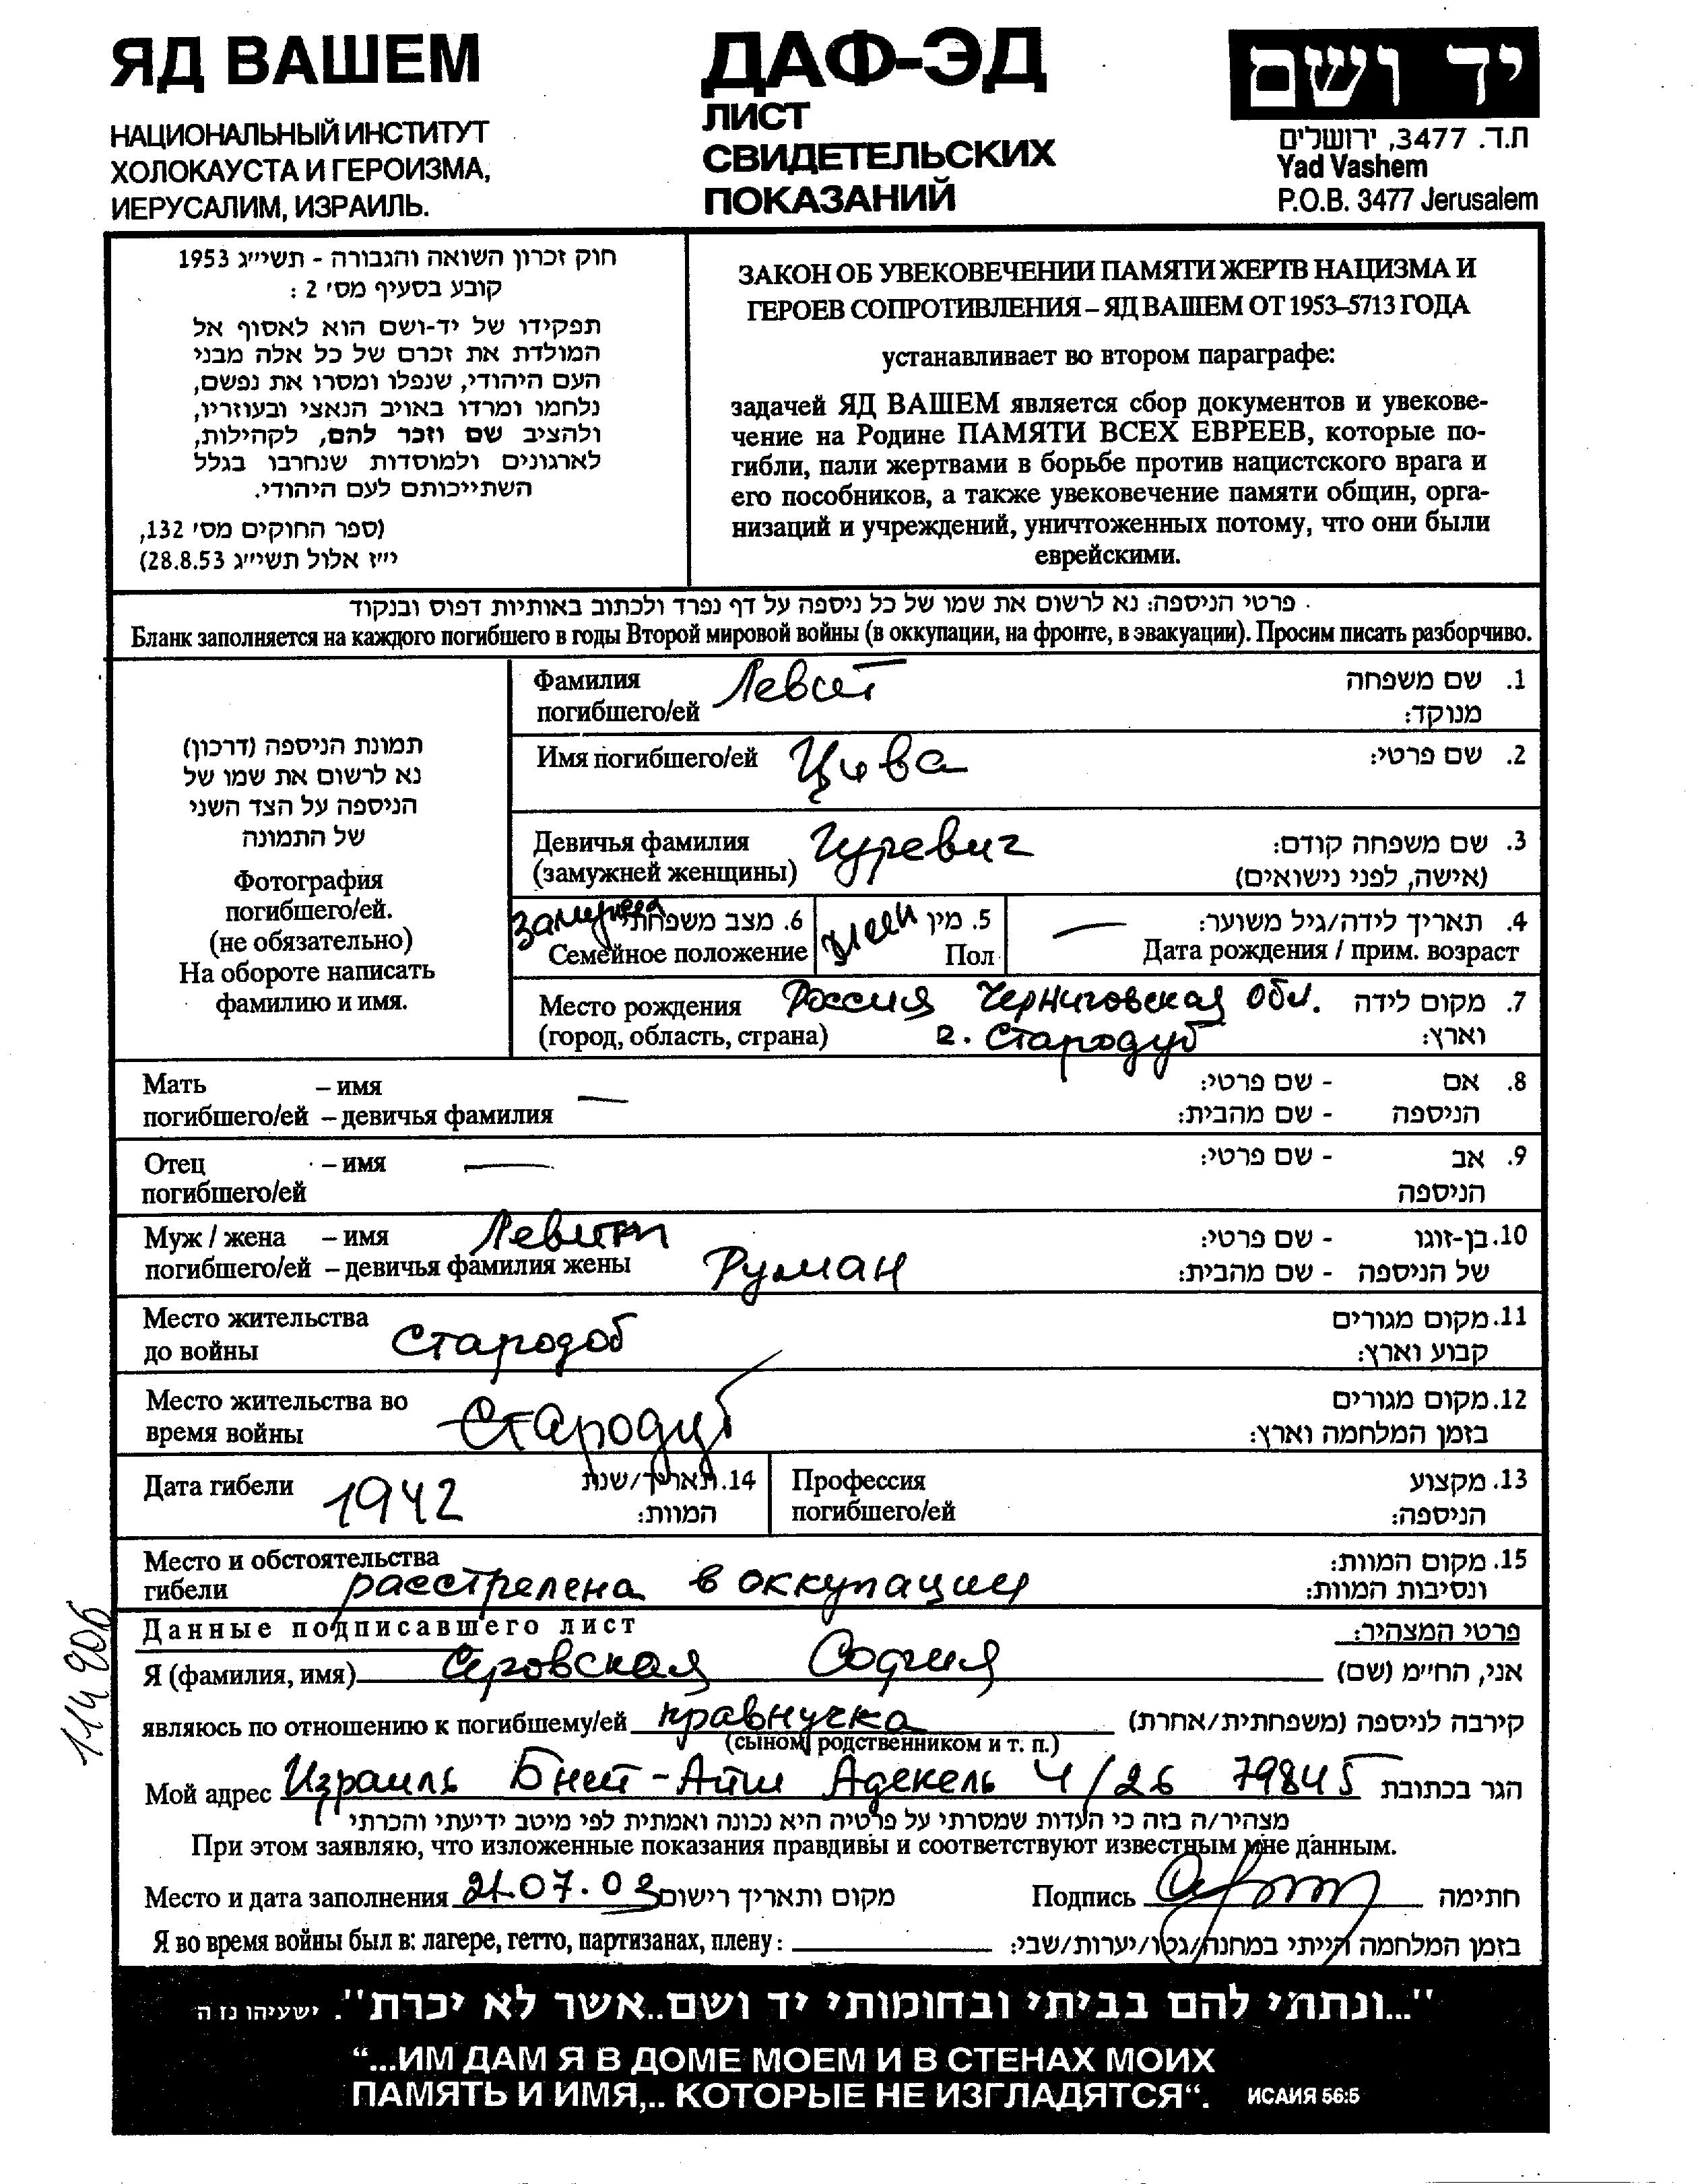 ЯД ВАШЕМ
НАЦИОНАЛЬНЫЙ ИНСТИТУТ
ХОЛОКАУСТА И ГЕРОИЗМА,
ИЕРУСАЛИМ, ИЗРАИЛЬ.
ДАФ-ЭД
ЛИСТ
СВИДЕТЕЛЬСКИХ
ПОКАЗАНИЙ
יד ושם
ת.ד. 3477, ירושלים
Yad Vashem
P.O.B. 3477 Jerusalem
חוק זכרון השואה והגבורה - תשי״ג 1953
קובע בסעיף מס׳ 2 :
תפקידו של יד-ושם הוא לאסוף אל
המולדת את זכרם של כל אלה מבני
העם היהודי, שנפלו ומסרו את נפשם,
נלחמו ומרדו באויב הנאצי ובעוזריו,
ולהציב שם וזכר להם, לקהילות,
לארגונים ולמוסדות שנחרבו בגלל
השתייכותם לעם היהודי.
(ספר החוקים מס׳ 132,
י״ז אלול תשי״ג 28.8.53)
ЗАКОН ОБ УВЕКОВЕЧЕНИИ ПАМЯТИ ЖЕРТВ НАЦИЗМА И
ГЕРОЕВ СОПРОТИВЛЕНИЯ – ЯД ВАШЕМ ОТ 1953–5713 ГОДА
устанавливает во втором параграфе:
задачей ЯД ВАШЕМ является сбор документов и увекове-
чение на Родине ПАМЯТИ ВСЕХ ЕВРЕЕВ, которые по-
гибли, пали жертвами в борьбе против нацистского врага и
его пособников, а также увековечение памяти общин, орга-
низаций и учреждений, уничтоженных потому, что они были
еврейскими.
פרטי הניספה: נא לרשום את שמו של כל ניספה על דף נפרד ולכתוב באותיות דפוס ובנקוד
Бланк заполняется на каждого погибшего в годы Второй мировой войны (в оккупации, на фронте, в эвакуации). Просим писать разборчиво.
תמונת הניספה (דרכון)
נא לרשום את שמו של
הניספה על הצד השני
של התמונה
Фотография
погибшего/ей.
(не обязательно)
На обороте написать
фамилию и имя.
Фамилия
погибшего/ей
1. שם משפחה
מנוקד:
Имя погибшего/ей Цива 2. שם פרטי:
Девичья фамилия Гуревич 3. שם משפחה קודם:
(замужней женщины) (אישה, לפני נישואים)
замужняя 6. מצב משפחתי
Семейное положение
жен 5. מין
Пол
— 4. תאריך לידה/גיל משוער:
Дата рождения / прим. возраст
Место рождения Россия Черниговская Обл. 7. מקום לידה
(город, область, страна) г. Стародуб וארץ:
Мать – имя — 8. אם - שם פרטי:
погибшего/ей – девичья фамилия הניספה - שם מהבית:
Отец – имя — 9. אב - שם פרטי:
погибшего/ей הניספה
Муж / жена – имя Левит 10. בן-זוגו - שם פרטי:
погибшего/ей – девичья фамилия жены Руман של הניספה - שם מהבית:
Место жительства 11. מקום מגורים
до войны Стародоб קבוע וארץ:
Место жительства во 12. מקום מגורים
время войны Стародуб בזמן המלחמה וארץ:
Дата гибели 1942 14. תאריך/שנת
המוות:
Профессия 13. מקצוע
погибшего/ей הניספה:
Место и обстоятельства 15. מקום המוות:
гибели расстрелена в оккупации ונסיבות המוות:
Данные подписавшего лист פרטי המצהיר:
Я (фамилия, имя) Серовская София אני, החי״מ (שם)
являюсь по отношению к погибшему/ей правнучка קירבה לניספה (משפחתית/אחרת)
(сыном, родственником и т. п.)
Мой адрес Израиль Бней-Аиш Адекель 4/26 79845 הגר בכתובת
מצהיר/ה בזה כי העדות שמסרתי על פרטיה היא נכונה ואמתית לפי מיטב ידיעתי והכרתי
При этом заявляю, что изложенные показания правдивы и соответствуют известным мне данным.
Место и дата заполнения 21.07.03 מקום ותאריך רישום
Подпись חתימה
Я во время войны был в: лагере, гетто, партизанах, плену: בזמן המלחמה הייתי במחנה/גטו/יערות/שבי:
114906
"...ונתתי להם בביתי ובחומותי יד ושם..אשר לא יכרת". ישעיהו נז ה
“...ИМ ДАМ Я В ДОМЕ МОЕМ И В СТЕНАХ МОИХ
ПАМЯТЬ И ИМЯ,.. КОТОРЫЕ НЕ ИЗГЛАДЯТСЯ“. ИСАИЯ 56:5